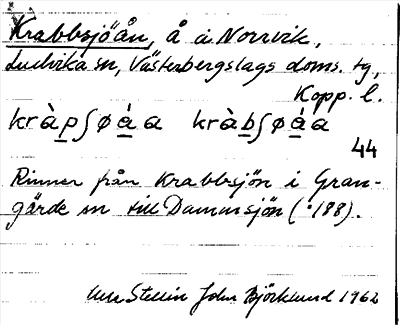 Krabbsjöån, å å Norrvik,
Ludvika sn, Västerbergslags doms. tg,
Kopp. l.
kràp̲ʃøá̲a kràb̲ʃøá̲a
44
Rinner från Krabbsjön i Gran-
gärde sn till Dammsjön (·188).
Stellin John Björklund 1962